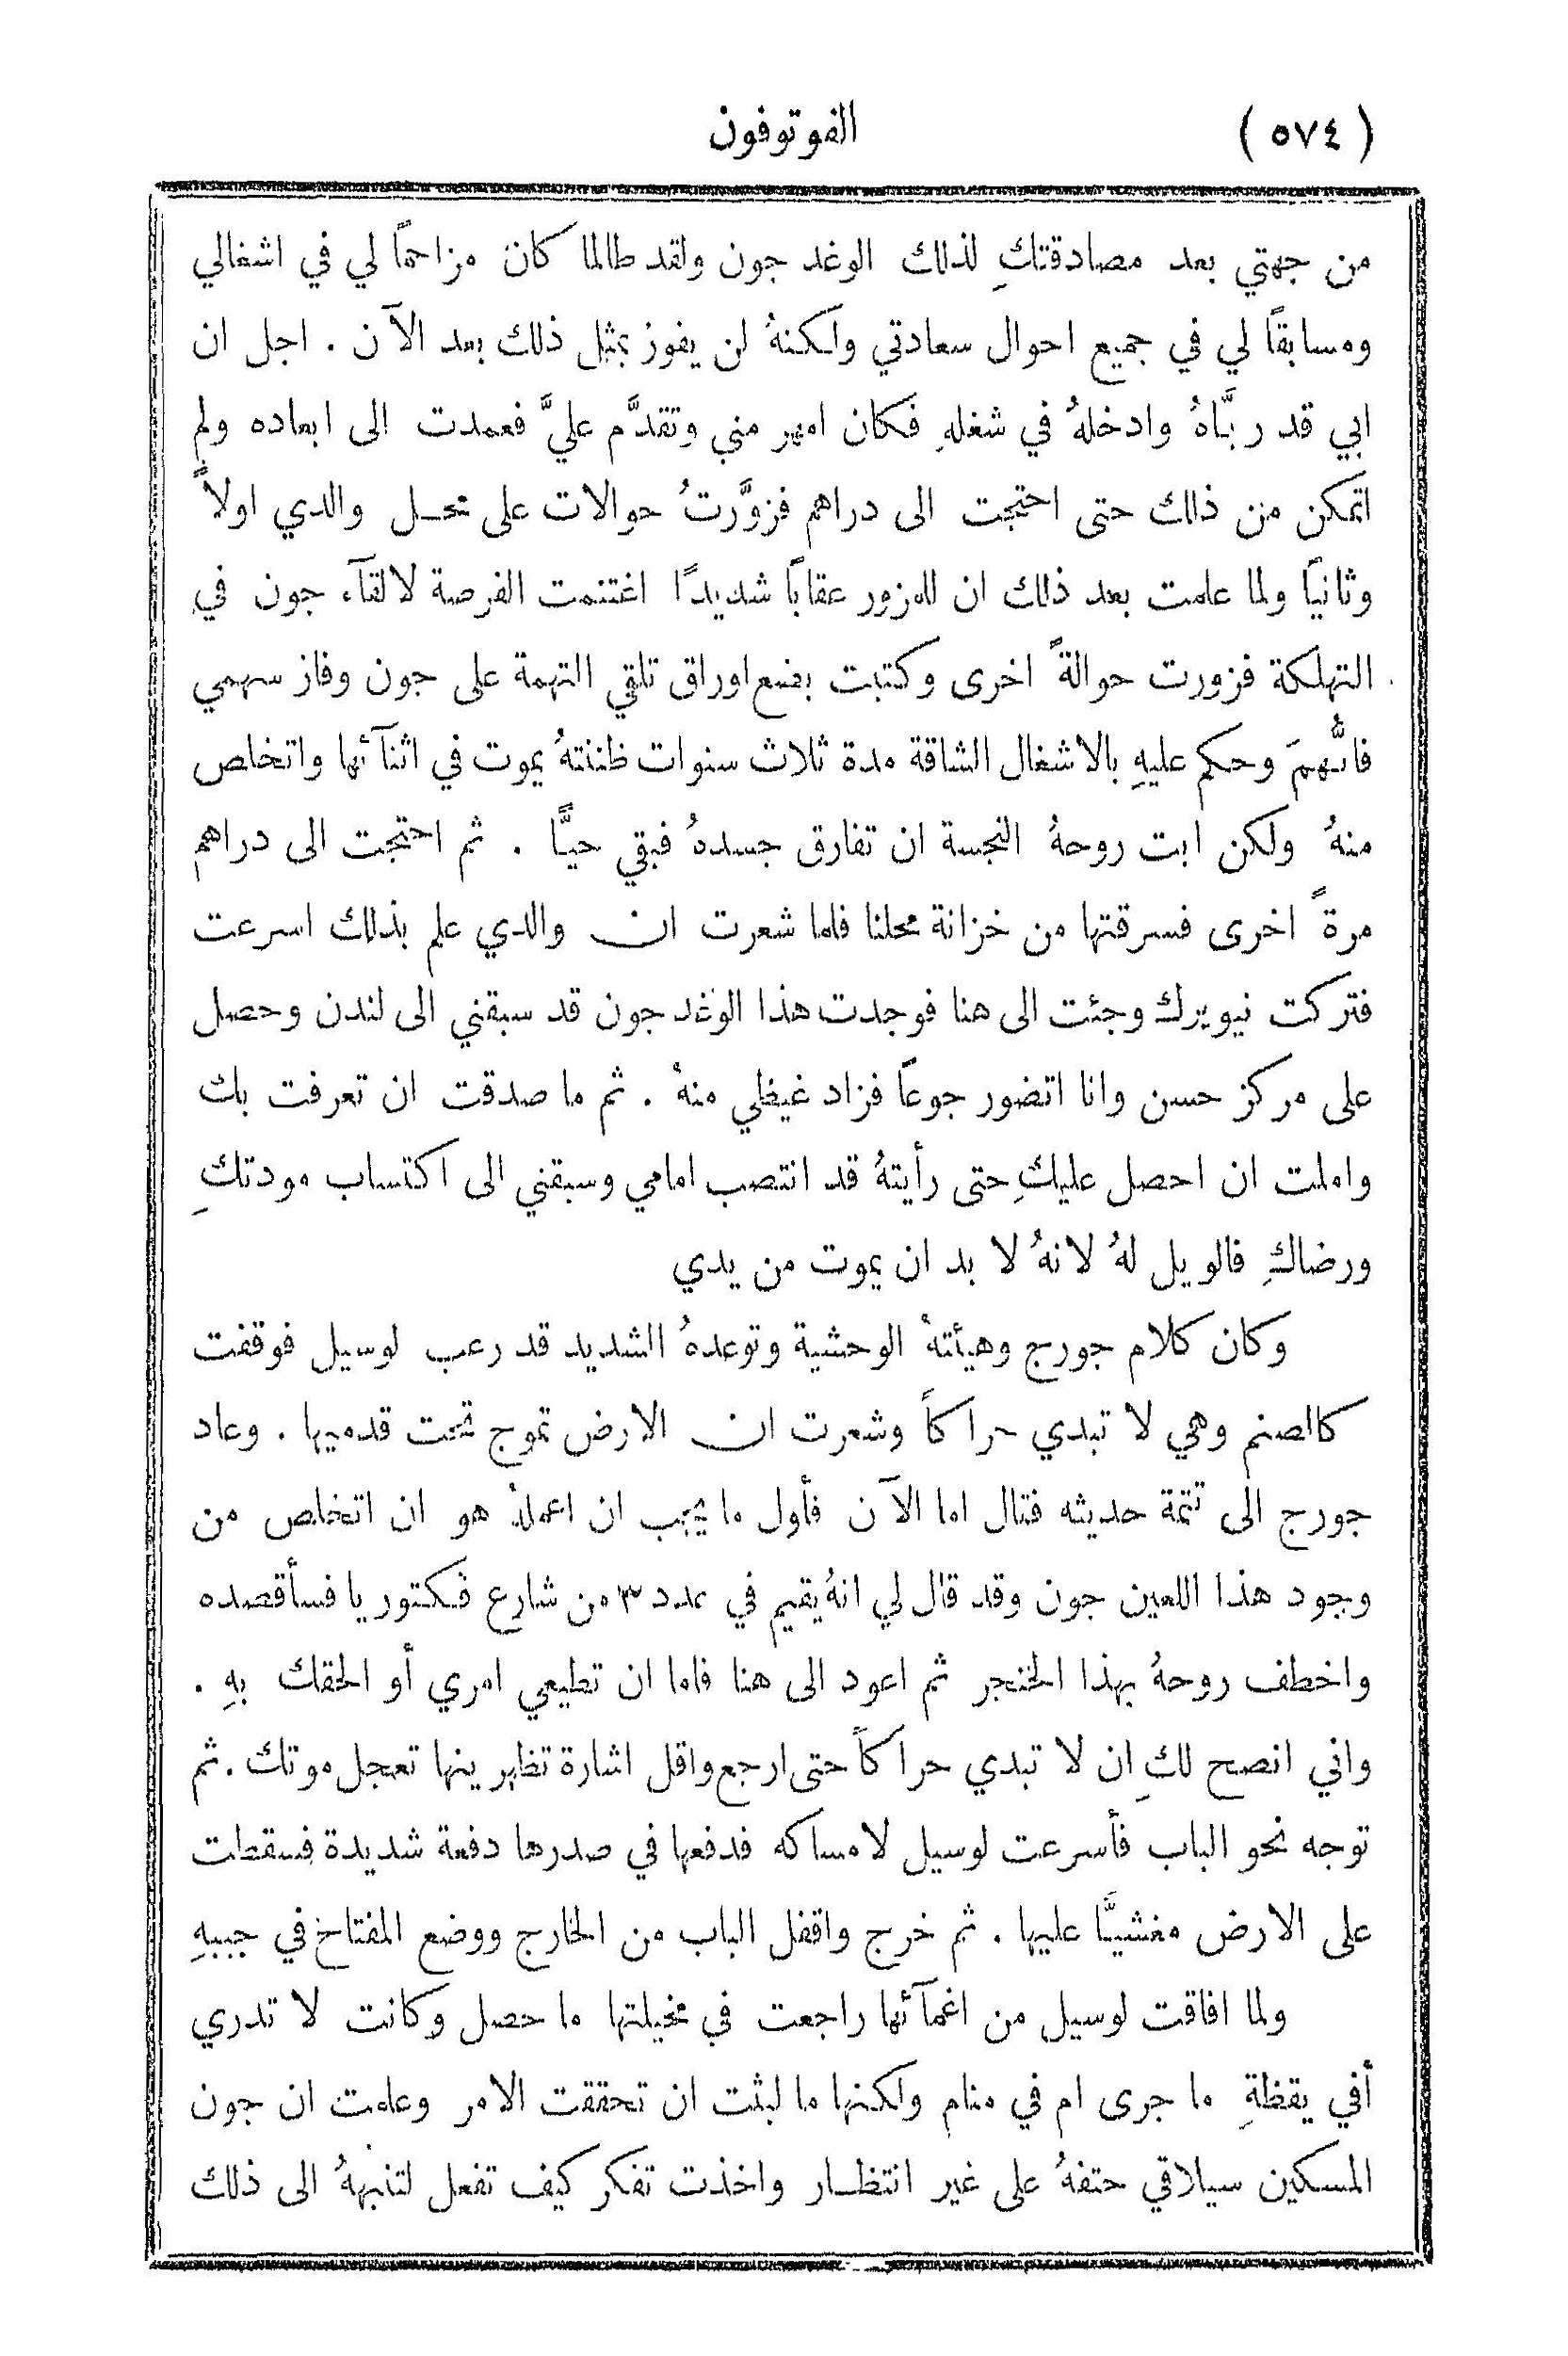 ( ٥٧٤ ) الفوتوفون
من جهتي بعد مصادقتكِ لذلك الوغد جون ولقد طالما كان مزاحماً لي في اشغالي
ومسابقاً لي في جميع احوال سعادتي ولكنهُ لن يفوز بمثل ذلك بعد الآن . اجل ان
ابي قد ربَّاهُ وادخلهُ في شغلهِ فكان امهر مني وتقدَّم عليَّ فعمدت الى ابعاده ولم
اتمكن من ذلك حتى احتجت الى دراهم فزوَّرتُ حوالات على محل والدي اولاً
وثانياً ولما علمت بعد ذلك ان للمزور عقاباً شديدًا اغتنمت الفرصة لالقآء جون في
التهلكة فزورت حوالةً اخرى وكتبت بضع اوراق تلقي التهمة على جون وفاز سهمي
فاتُّهمَ وحكم عليهِ بالاشغال الشاقة مدة ثلاث سنوات ظننتهُ يموت في اثنآئها واتخلص
منهُ ولكن ابت روحهُ النجسة ان تفارق جسدهُ فبقي حيًّا . ثم احتجت الى دراهم
مرةً اخرى فسرقتها من خزانة محلنا فلما شعرت ان والدي علم بذلك اسرعت
فتركت نيويرك وجئت الى هنا فوجدت هذا الوغد جون قد سبقني الى لندن وحصل
على مركز حسن وانا اتضور جوعاً فزاد غيظي منهُ . ثم ما صدقت ان تعرفت بك
واملت ان احصل عليكِ حتى رأيتهُ قد انتصب امامي وسبقني الى اكتساب مودتكِ
ورضاكِ فالويل لهُ لانهُ لا بد ان يموت من يدي
وكان كلام جورج وهيأتهُ الوحشية وتوعدهُ الشديد قد رعب لوسيل فوقفت
كالصنم وهي لا تبدي حراكاً وشعرت ان الارض تموج تحت قدميها . وعاد
جورج الى تتمة حديثه فقال اما الآن فأول ما يجب ان اعملهُ هو ان اتخلص من
وجود هذا اللعين جون وقد قال لي انهُ يقيم في عدد ٣ من شارع ڤكتوريا فسأقصده
واخطف روحهُ بهذا الخنجر ثم اعود الى هنا فاما ان تطيعي امري أو الحقك بهِ .
واني انصح لكِ ان لا تبدي حراكاً حتى ارجع واقل اشارة تظهرينها تعجل موتك . ثم
توجه نحو الباب فأسرعت لوسيل لامساكه فدفعها في صدرها دفعة شديدة فسقطت
على الارض مغشيًّا عليها . ثم خرج واقفل الباب من الخارج ووضع المفتاح في جيبهِ
ولما افاقت لوسيل من اغمآئها راجعت في مخيلتها ما حصل وكانت لا تدري
أفي يقظةِ ما جرى ام في منام ولكنها ما لبثت ان تحققت الامر وعلمت ان جون
المسكين سيلاقي حتفهُ على غير انتظار واخذت تفكر كيف تفعل لتنبههُ الى ذلك